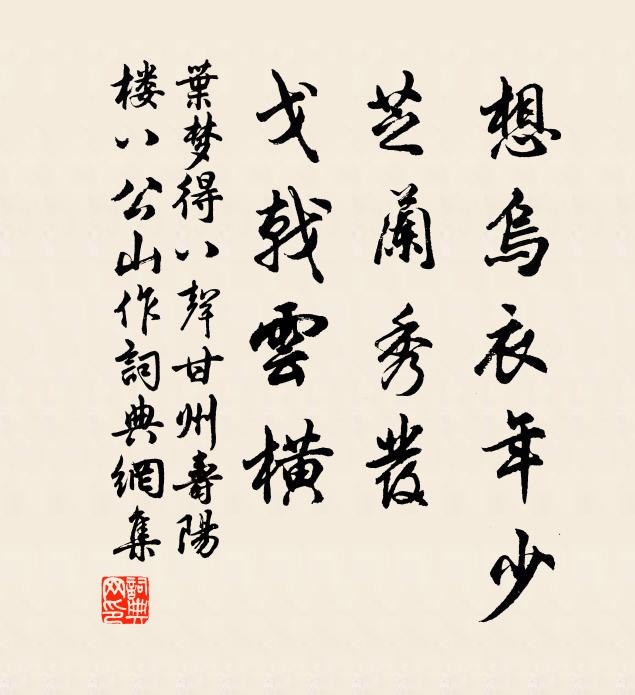 想烏衣年少
芝蘭秀發
戈戟雲橫
葉梦得八聲甘州壽陽
楼八公山作詞典網集
詞典网印